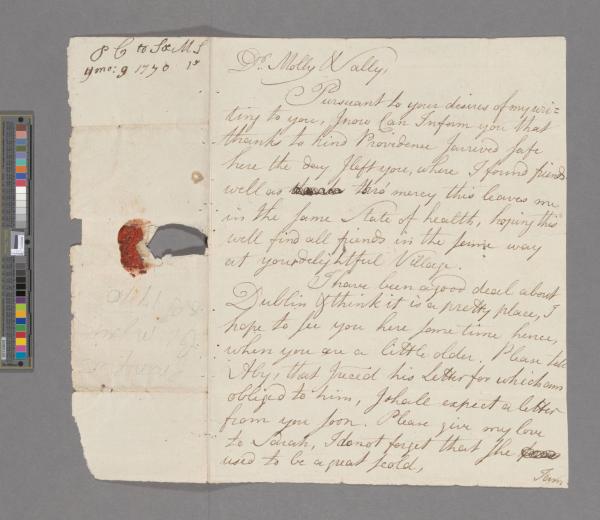 P C to S & M S
9 mo: 9 1770 1st
Dr. Molly & Sally,
Pursuant to your desires of my wri-
ting to you, I now Can Inform you that
thanks to kind Providence I arrived safe
here the day I left you, where I found friends
well as thro' mercy this leaves me
in the same State of health, hoping this
will find all friends in the same way
at your delightful Village.
I have been a good deal about
Dublin & think it is a pretty place, I
hope to see you here some time hence,
when you are a little older. Please tell
Aby, that I rec'd his Letter for which am
obliged to him, I shall expect a letter
from you soon. Please give my love
to Sarah, I do not forget that she
used to be a great scold,